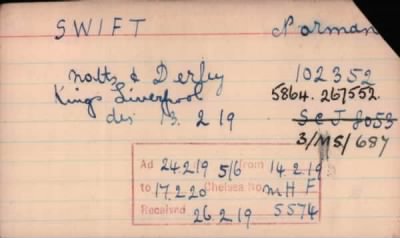 SWIFT Norman
Notts & Derby 102352
Kings Liverpool 5864. 267552.
dis 13. 2 19 S C J 8053
3/MS/687
Ad 24 2 19 5/6 from 14 2. 19
to 17. 2. 20 Chelsea No. M H F
Received 26. 2 19 5574